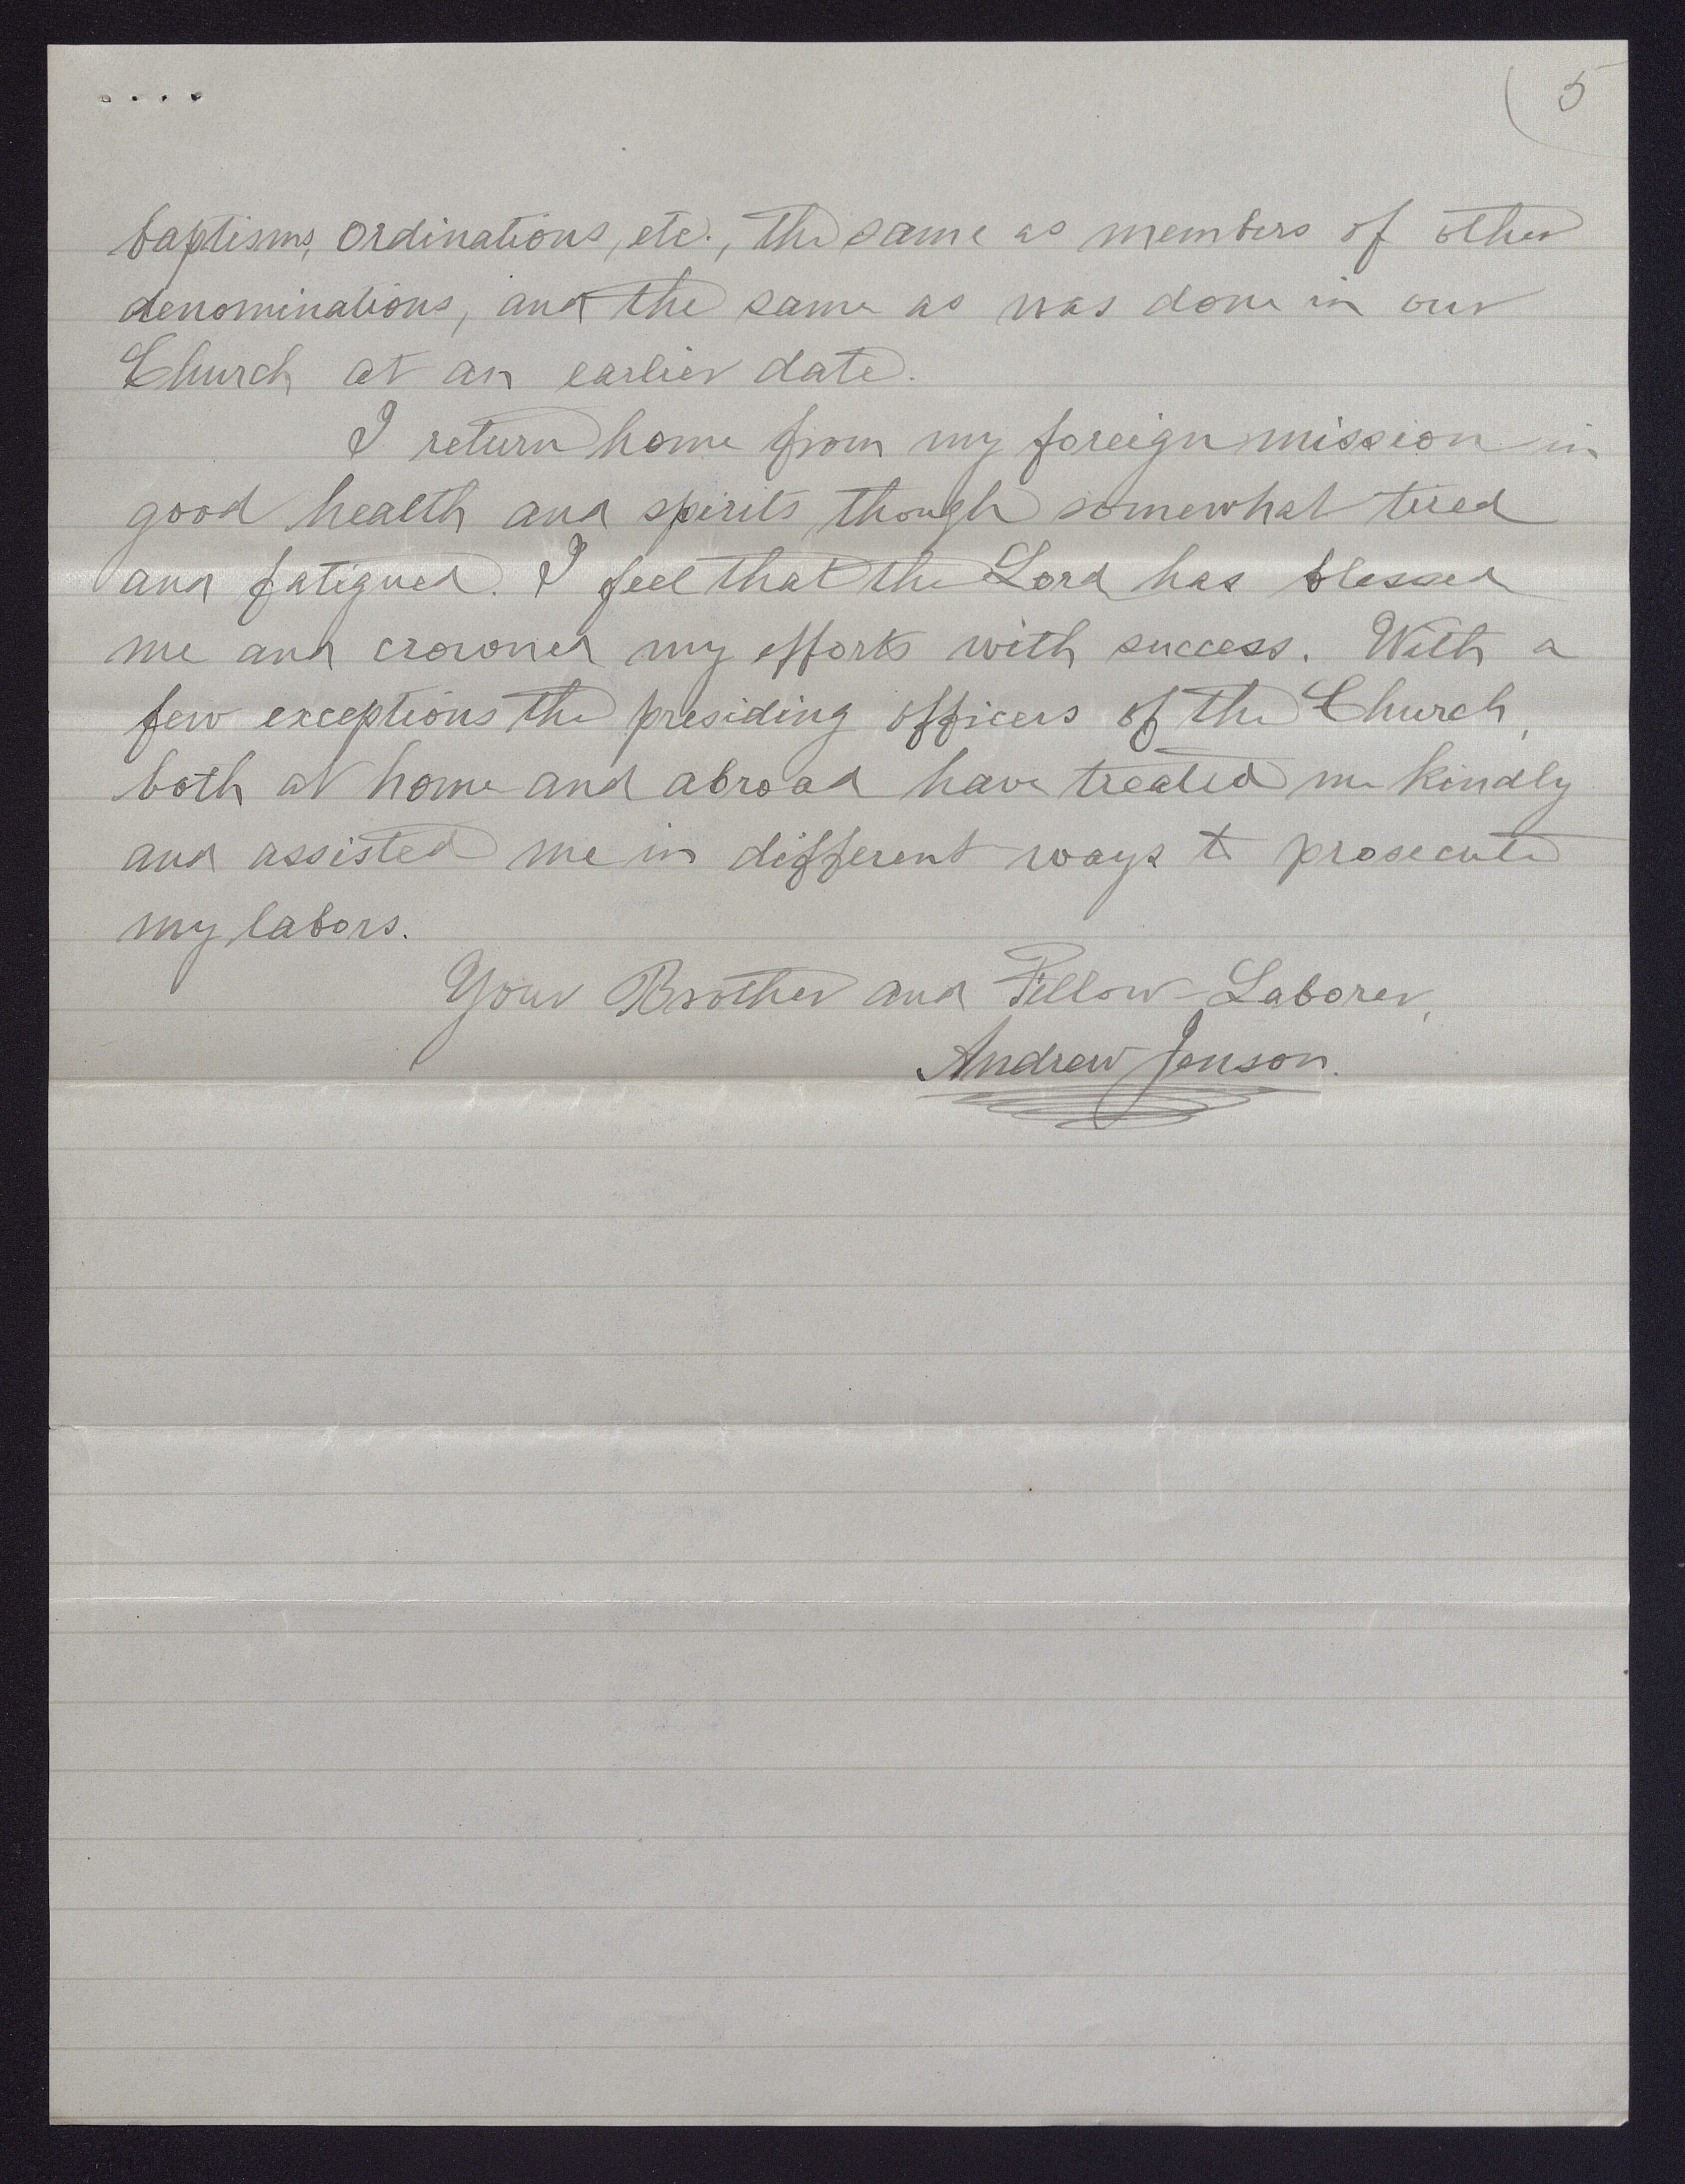 5
baptisms, ordinations, etc., the same as members of other
denominations, and the same as was done in our
Church at an earlier date.
I return home from my foreign mission in
good health and spirits, though somewhat tired
and fatigued. I feel that the Lord has blessed
me and crowned my efforts with success. With a
few exceptions the presiding officers of the Church,
both at home and abroad have treated me kindly
and assisted me in different ways to prosecute
my labors.
Your Brother and Fellow-Laborer,
Andrew Jenson.